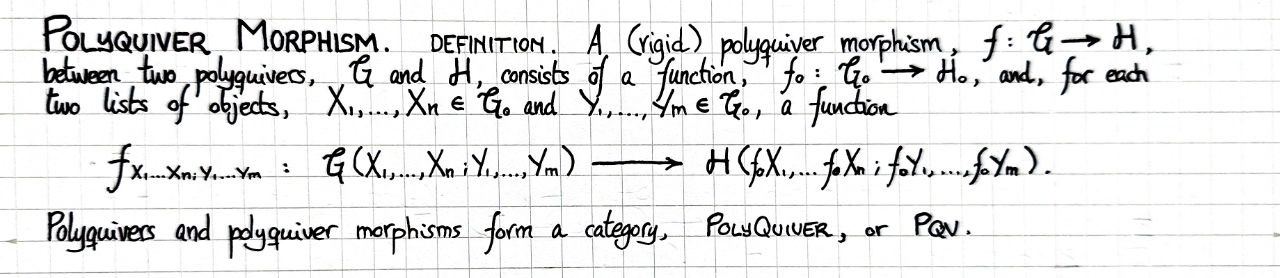 POLYQUIVER MORPHISM. DEFINITION. A (rigid) polyquiver morphism, f: G → H,
between two polyquivers, G and H, consists of a function, f₀: G₀ → H₀, and, for each
two lists of objects, X₁,...,Xn ∈ G₀ and Y₁,...,Ym ∈ G₀, a function
f X₁...Xn; Y₁...Ym : G(X₁,...,Xn; Y₁,...,Ym) ⟶ H(f₀X₁,... f₀Xn; f₀Y₁,...,f₀Ym).
Polyquivers and polyquiver morphisms form a category, POLYQUIVER, or PQV.